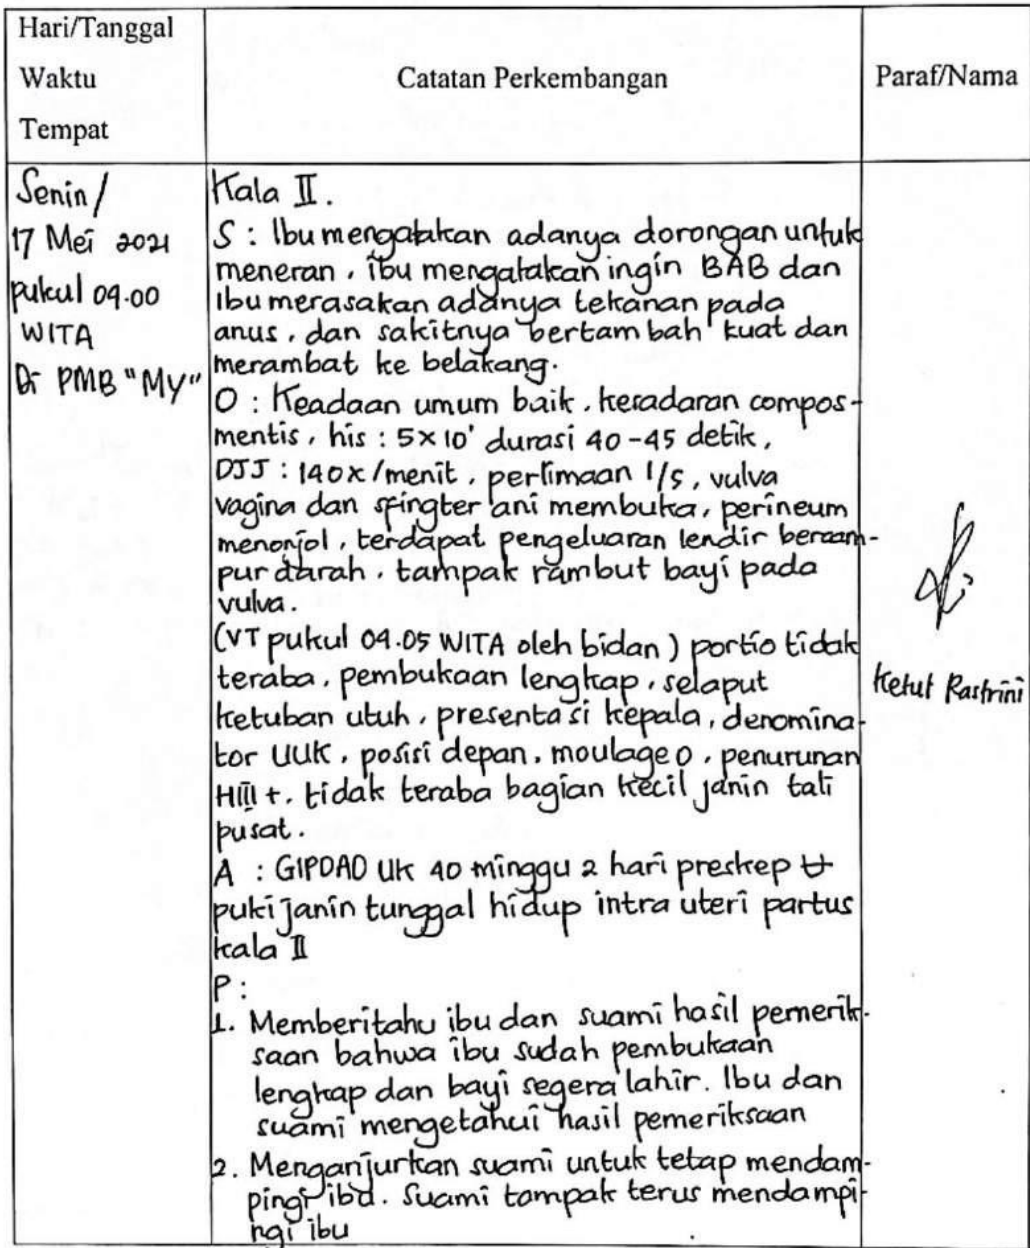 Hari/Tanggal
Waktu
Tempat
Catatan Perkembangan
Paraf/Nama
Senin/
17 Mei 2021
pukul 09.00
WITA
Di PMB "MY"
Kala II.
S : Ibu mengatakan adanya dorongan untuk
meneran, ibu mengatakan ingin BAB dan
Ibu merasakan adanya tekanan pada
anus, dan sakitnya bertambah kuat dan
merambat ke belakang.
O : Keadaan umum baik, kesadaran compos-
mentis, his : 5x10' durasi 40-45 detik,
DJJ : 140x/menit, perlimaan 1/5, vulva
vagina dan sfingter ani membuka, perineum
menonjol, terdapat pengeluaran lendir bercam-
pur darah, tampak rambut bayi pada
vulva.
(VT pukul 09.05 WITA oleh bidan) portio tidak
teraba, pembukaan lengkap, selaput
ketuban utuh, presentasi kepala, denomina-
tor UUK, posisi depan, moulage 0, penurunan
HIII +, tidak teraba bagian kecil janin tali
pusat.
A : GIP0A0 UK 40 minggu 2 hari preskep U
puki janin tunggal hidup intra uteri partus
kala II
P :
1. Memberitahu ibu dan suami hasil pemerik-
saan bahwa ibu sudah pembukaan
lengkap dan bayi segera lahir. Ibu dan
suami mengetahui hasil pemeriksaan
2. Menganjurkan suami untuk tetap mendam-
pingi ibu. Suami tampak terus mendampi-
ngi ibu
Ketut Rastrini